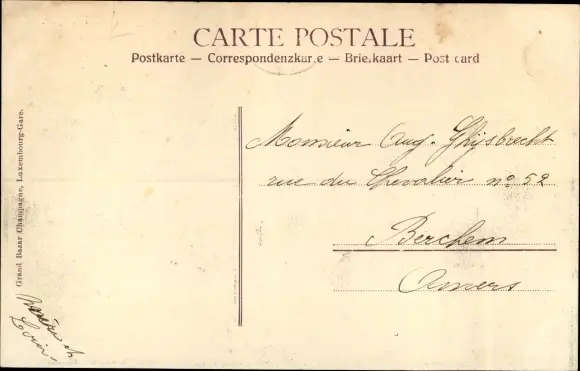 CARTE POSTALE
Postkarte — Correspondenzkarte — Briefkaart — Post card
Grand Bazar Champagne, Luxembourg-Gare.
Monsieur Aug. Ghijsbrecht
rue du Chevalier no 52
Berchem
Anvers